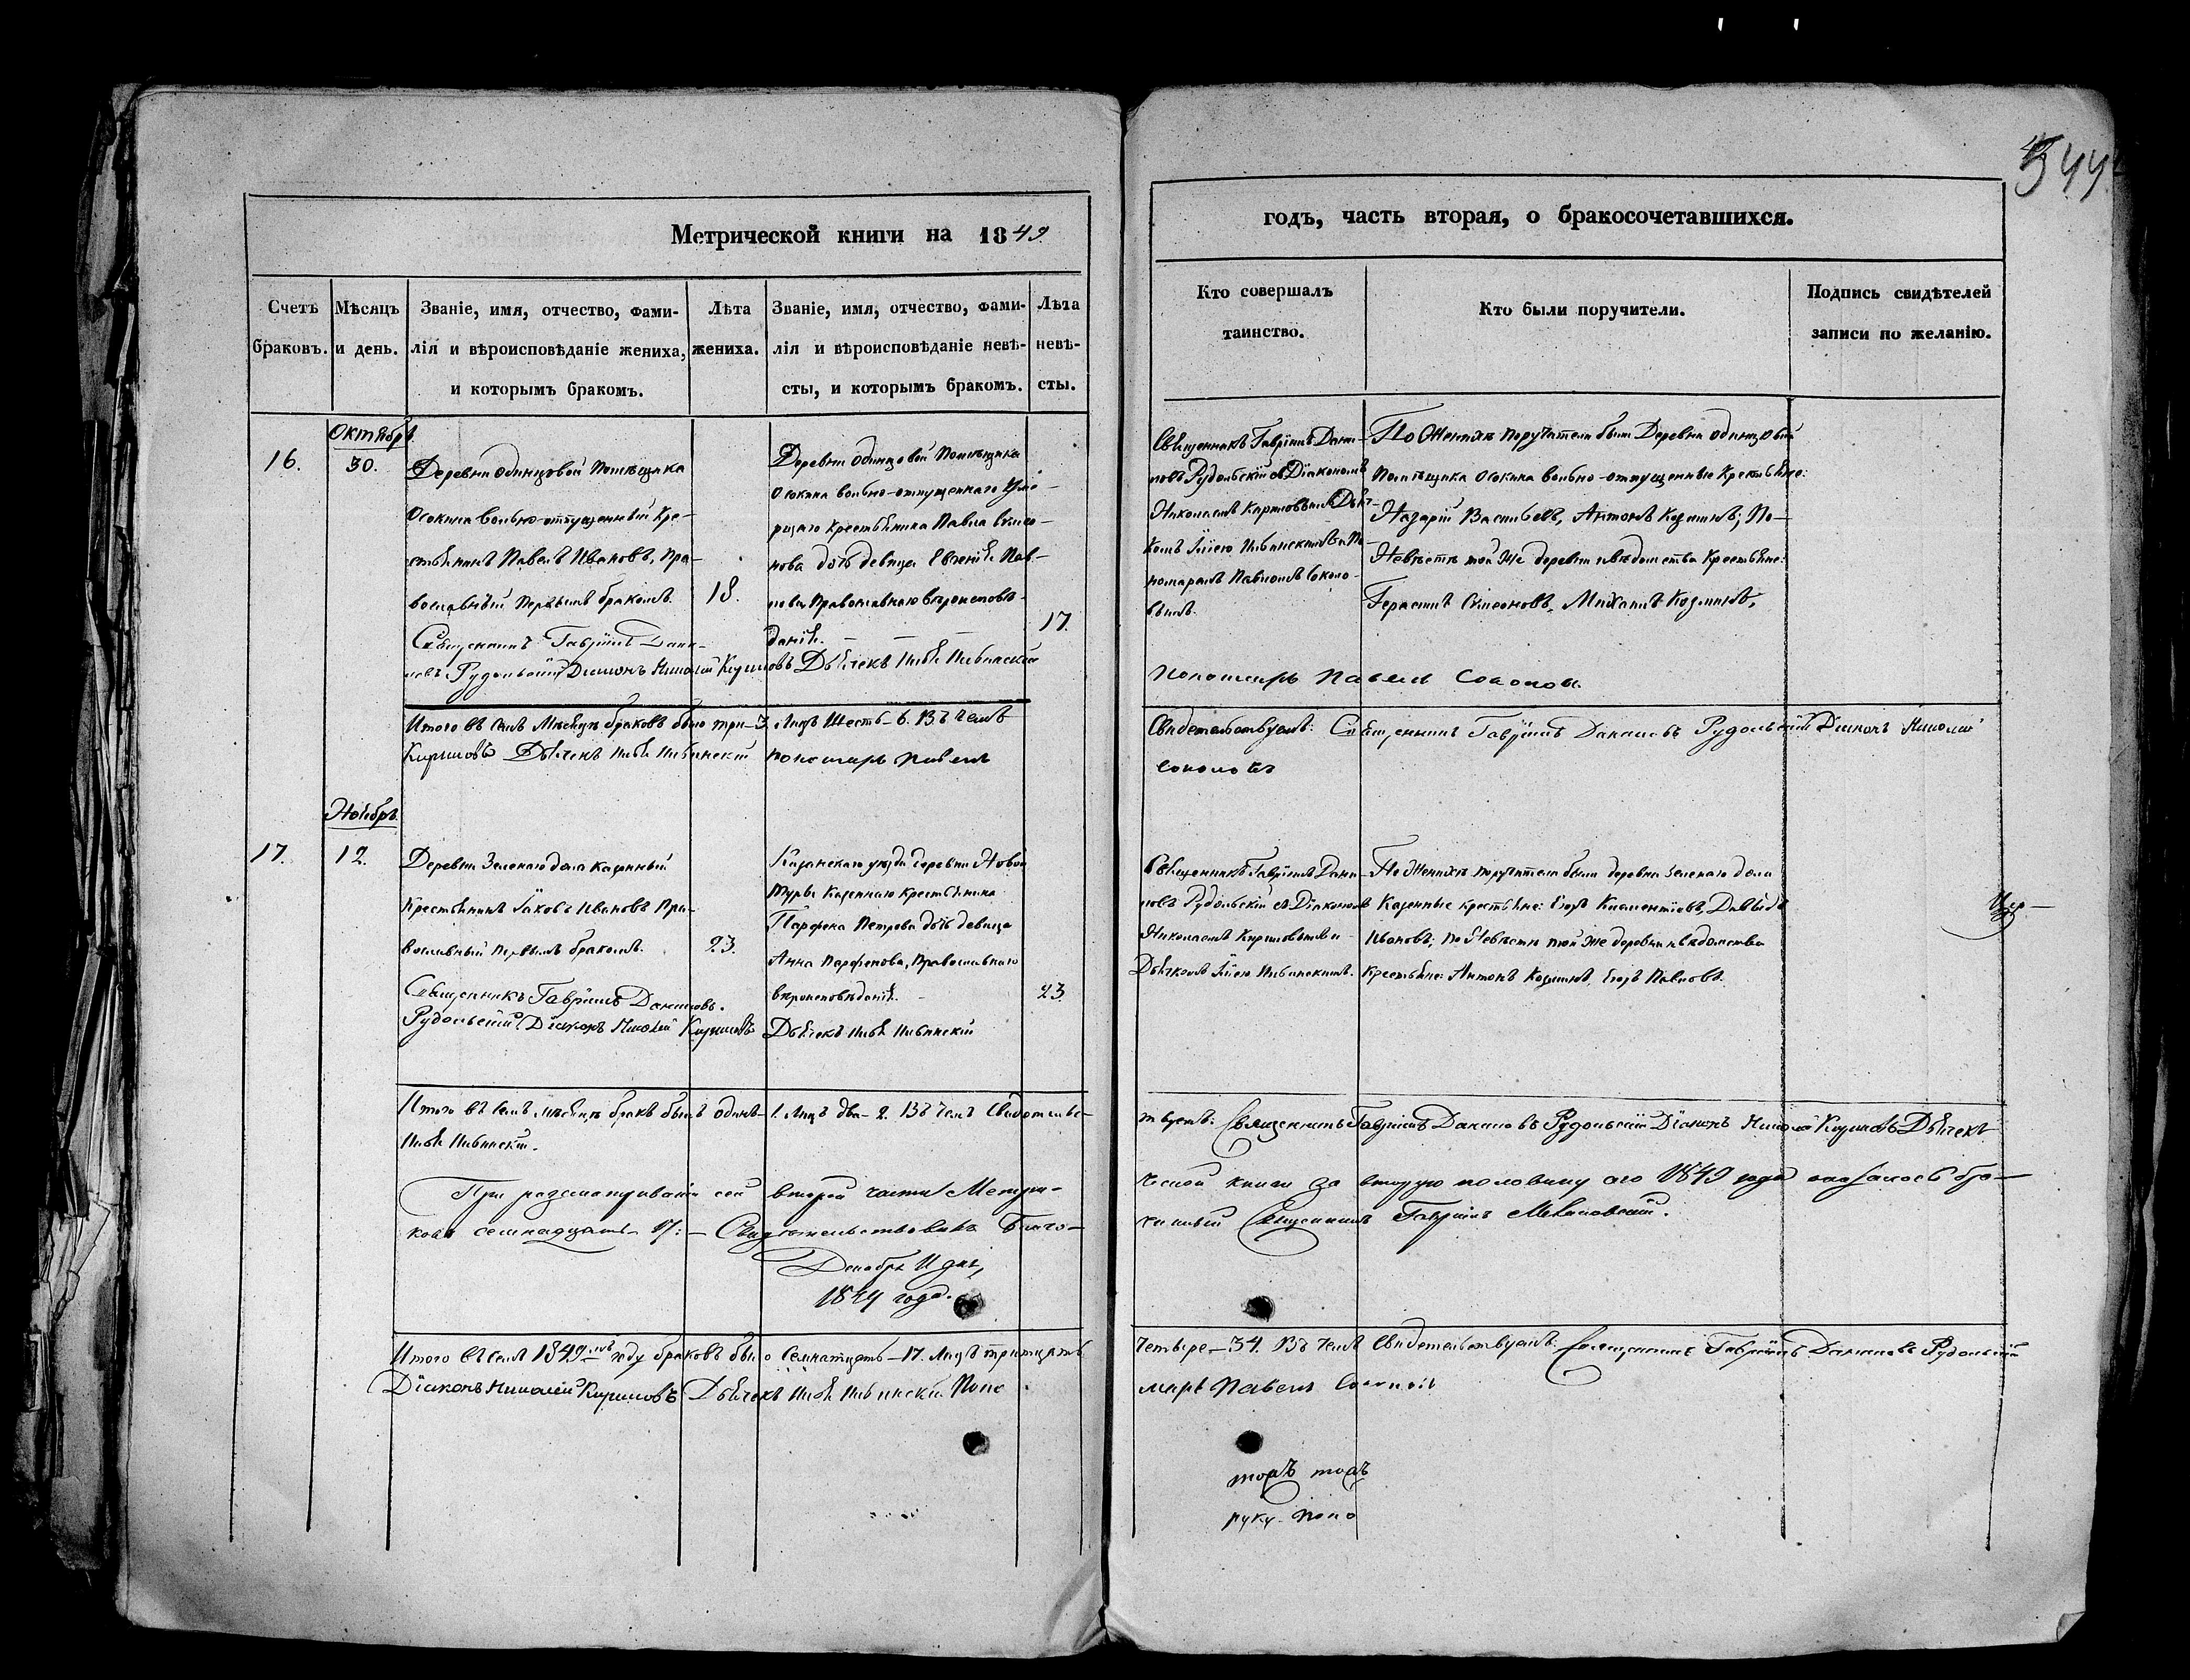 544
Метрической книги на 1849
годъ, часть вторая, о бракосочетавшихся.
Счетъ браковъ.
Мѣсяцъ и день.
Званіе, имя, отчество, фами-
лія и вѣроисповѣданіе жениха,
и которымъ бракомъ.
Лѣта
жениха.
Званіе, имя, отчество, фами-
лія и вѣроисповѣданіе невѣ-
сты, и которымъ бракомъ.
Лѣта
невѣ-
сты.
Кто совершалъ
таинство.
Кто были поручители.
Подпись свидѣтелей
записи по желанію.
16.
Октябрь
30.
Деревни Одинцовой Помѣщика
Осокина вольно-отпущенный Кре-
стьянинъ Павелъ Ивановъ, пра-
вославный первымъ бракомъ.
18.
Священникъ Гавріилъ Дани-
ловъ Рудольскій Діаконъ Николай Кириловъ Дьячекъ Илья Пибинскій
Деревни Одинцовой Помѣщика
Осокина вольно-отпущеннаго Уме-
ршаго крестьянина Павла Симео-
нова дочь девица Евгенія Пав-
лова Православнаго вѣроисповѣ-
данія.
17.
Священникъ Гавріилъ Дани-
ловъ Рудольскій съ Діакономъ
Николаемъ Кириловымъ Дьяч-
комъ Иліею Пибинскимъ и По-
номаремъ Павломъ Соколо-
вымъ.
По Женихѣ поручители были Деревни Одинцовой
Помѣщика Осокина вольно-отпущенные Крестьяне:
Назарій Васильевъ, Антонъ Козминъ; По
Невѣстѣ той же деревни и вѣдомства Крестьяне:
Герасимъ Симеоновъ, Михаилъ Козминъ,
Пономарь Павелъ Соколовъ
Итого въ семъ Мѣсяцѣ браковъ было три-3. Лицъ Шесть-6. Въ чемъ
Свидетельствуемъ: Священникъ Гавріилъ Даниловъ Рудольскій Діаконъ Николай
Кириловъ Дьячекъ Илья Пибинскій Пономарь Павелъ
Соколовъ
Ноябрь
17.
12.
Деревни Зеленаго дола казенный
Крестьянинъ Іаковъ Ивановъ Пра-
вославный первымъ бракомъ.
23.
Священникъ Гавріилъ Даниловъ
Рудольскій Діаконъ Николай Кириловъ Дьячекъ Илья Пибинскій
Казанскаго уѣзда деревни Новой
Туры Казеннаго Крестьянина
Парфена Петрова дочь девица
Анна Парфенова, Православнаго
вѣроисповѣданія.
23.
Священникъ Гавріилъ Дани-
ловъ Рудольскій съ Діакономъ
Николаемъ Кириловымъ и
Дьячкомъ Иліею Пибинскимъ.
По Женихѣ поручители были деревни Зеленаго дола
Казенные крестьяне: Егоръ Климентіевъ, Давыдъ
Ивановъ; по Невѣстѣ той же деревни и вѣдомства
Крестьяне: Антонъ Козминъ, Егоръ Павловъ.
Итого въ семъ мѣсяцѣ бракъ былъ одинъ-1. Лицъ два-2. Въ чемъ Свидетельс-
твуемъ: Священникъ Гавріилъ Даниловъ Рудольскій Діаконъ Николай Кириловъ Дьячекъ
Илья Пибинскій.
При разсматриваніи сей второй части Метри-
ческой книги за вторую половину сего 1849 года оказалось бра-
ковъ семнадцать 17:- Свидѣтельствовалъ Благо-
чинный Священникъ Гавріилъ
Декабря дня,
18 года.
Итого въ семъ 1849мъ году браковъ было Семнатцать-17. Лицъ тритцать
четыре-34. Въ чемъ Свидетельствуемъ: Священникъ Гавріилъ Даниловъ Рудольскій
Діаконъ Николай Кириловъ Дьячекъ Илья Пибинскій Поно
марь Павелъ Соколовъ
руку